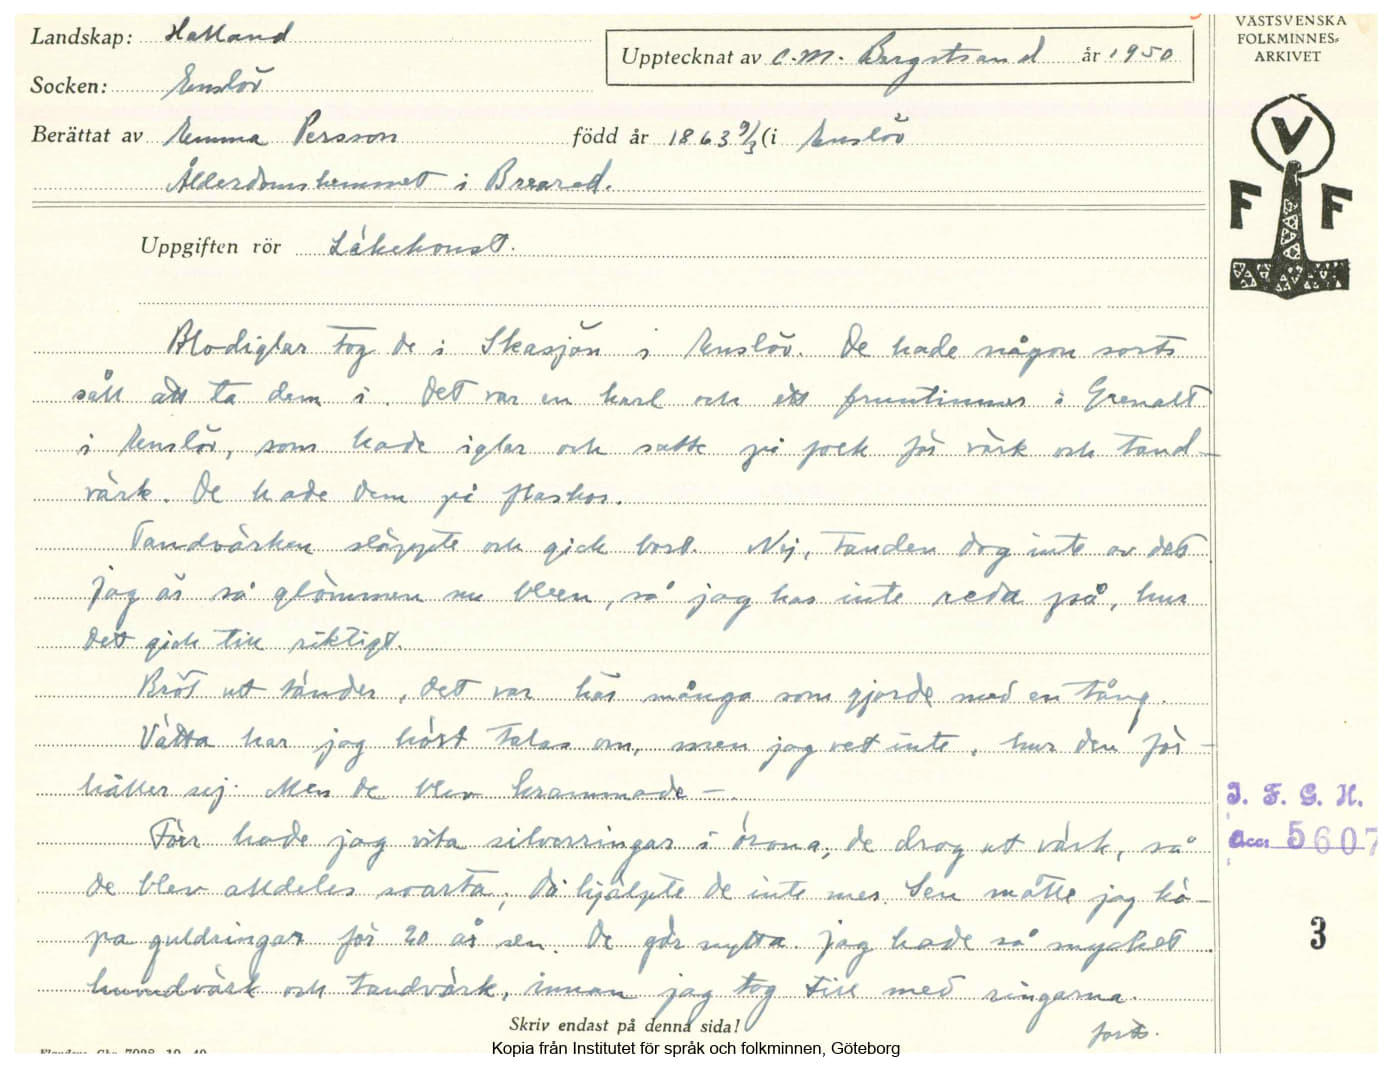 Landskap: Halland
Upptecknat av C.M. Bergstrand år 1950
VÄSTSVENSKA
FOLKMINNES-
ARKIVET
Socken: Enslöv
Berättat av Emma Persson född år 1863 9/3 (i Enslöv
Ålderdomshemmet i Breared.
V
F F
Uppgiften rör Läkekonst.
Blodiglar tog de i Skasjön i Enslöv. De hade någon sorts
sätt att ta dem i. Det var en karl och ett fruntimmer i Grenalt
i Enslöv, som hade iglar och satte på folk för värk och tand-
värk. De hade dem på flaskor.
Tandvärken släppte och gick bort. Nej, tanden dog inte av det
jag är så glömmen nu bleen, så jag har inte reda på, hur
det gick till riktigt.
Bröt ut tänder, det var här många som gjorde med en tång.
Vätta har jag hört talas om, men jag vet inte, hur den för-
håller sej. Men de blev krammade –.
Förr hade jag vita silverringar i örona, de drog ut värk, så
de blev alldeles svarta, då hjälpte de inte mer. Sen måtte jag kö-
pa guldringar för 20 år sen. De gör nytta. Jag hade så mycket
huvudvärk och tandvärk, innan jag tog till med ringarna.
forts.
I. F. G. H.
Acc. 5607
3
Skriv endast på denna sida!
Kopia från Institutet för språk och folkminnen, Göteborg